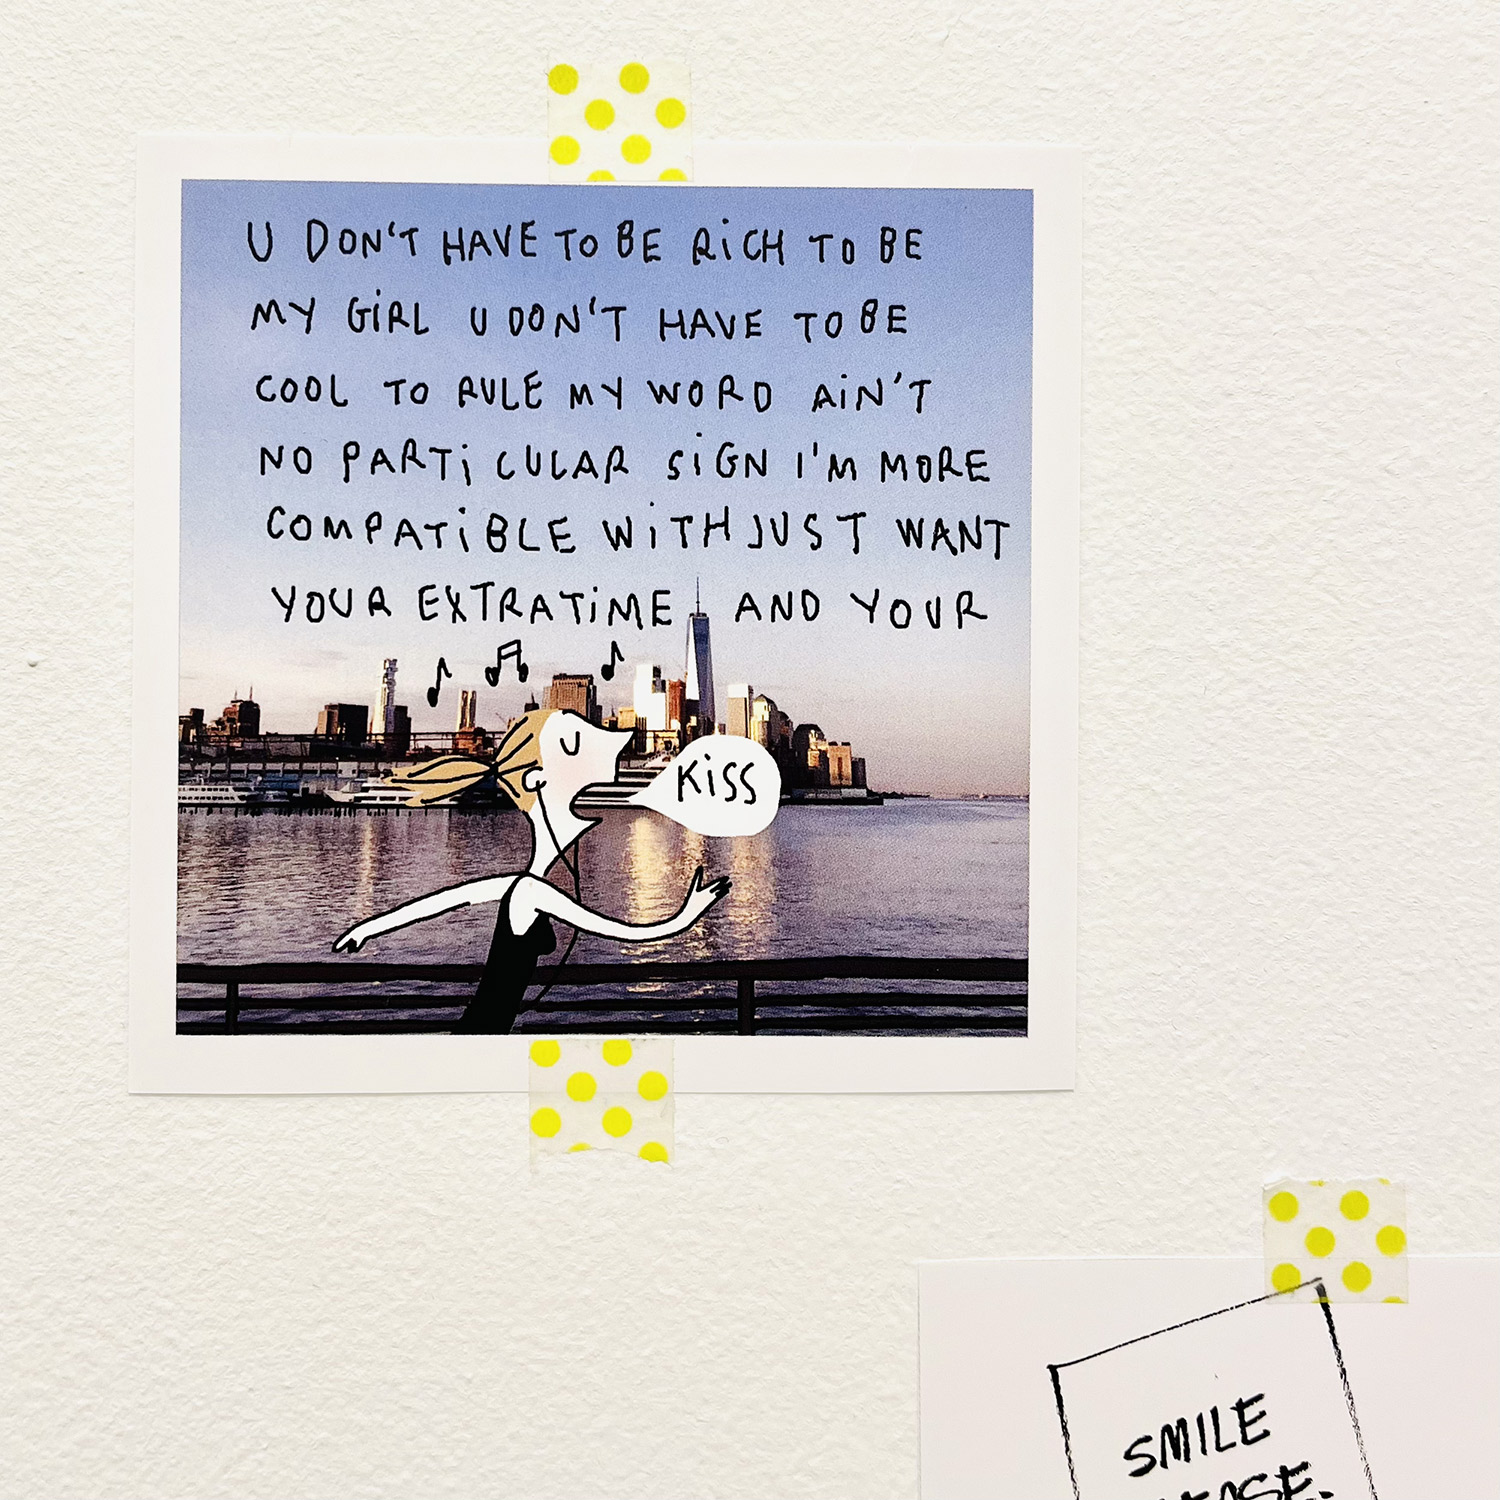 U DON'T HAVE TO BE RiCH TO BE
MY GiRL U DON'T HAVE TO BE
COOL TO RULE MY WORD AiN'T
NO PARTiCULAR SiGN I'M MORE
COMPATiBLE WiTH JUST WANT
YOUR EXTRATiME AND YOUR
KiSS
SMILE